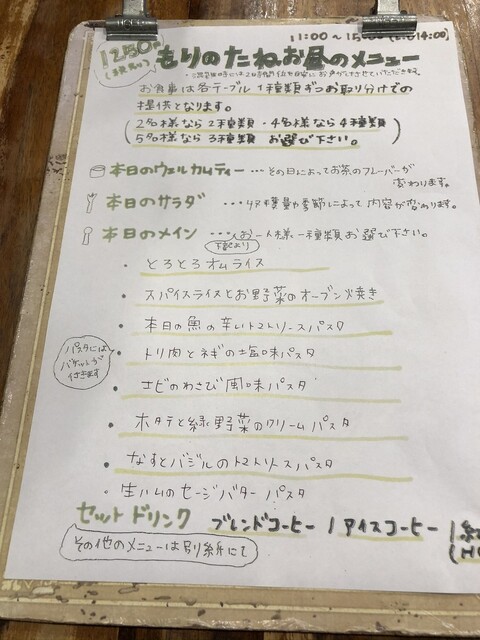 11:00～15:00 14:00)
1250円
(税込)
もりのたねお昼のメニュー
お食事は各テーブル 1種類ずつお取り分けでの
提供となります。
(2名様なら2種類・4名様なら4種類
5名様なら3種類 お選び下さい。)
本日のウェルカムティー … その日によってお茶のフレーバーが
変わります。
本日のサラダ … 収穫量や季節によって内容が変わります。
本日のメイン … お一人様一種類お選び下さい。
下記より
・とろとろオムライス
・スパイスライスとお野菜のオーブン焼き
・本日の魚の辛いトマトソースパスタ
・トリ肉とネギの塩味パスタ
パスタには
バゲットが
付きます
・エビのわさび風味パスタ
・ホタテと緑野菜のクリームパスタ
・なすとバジルのトマトソースパスタ
・生ハムのセージバター パスタ
セットドリンク ブレンドコーヒー / アイスコーヒー /
その他のメニューは別紙にて